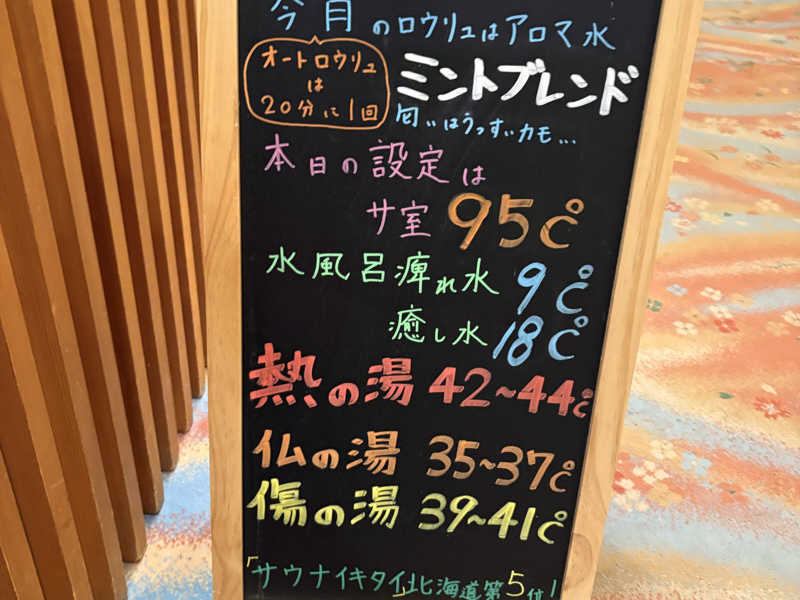 今月のロウリュはアロマ水
オートロウリュ
は
20分に1回
ミントブレンド
匂いはうっすいカモ...
本日の設定は
サ室 95℃
水風呂痺れ水 9℃
癒し水 18℃
熱の湯 42~44℃
仏の湯 35~37℃
傷の湯 39~41℃
「サウナイキタイ」北海道第5位!